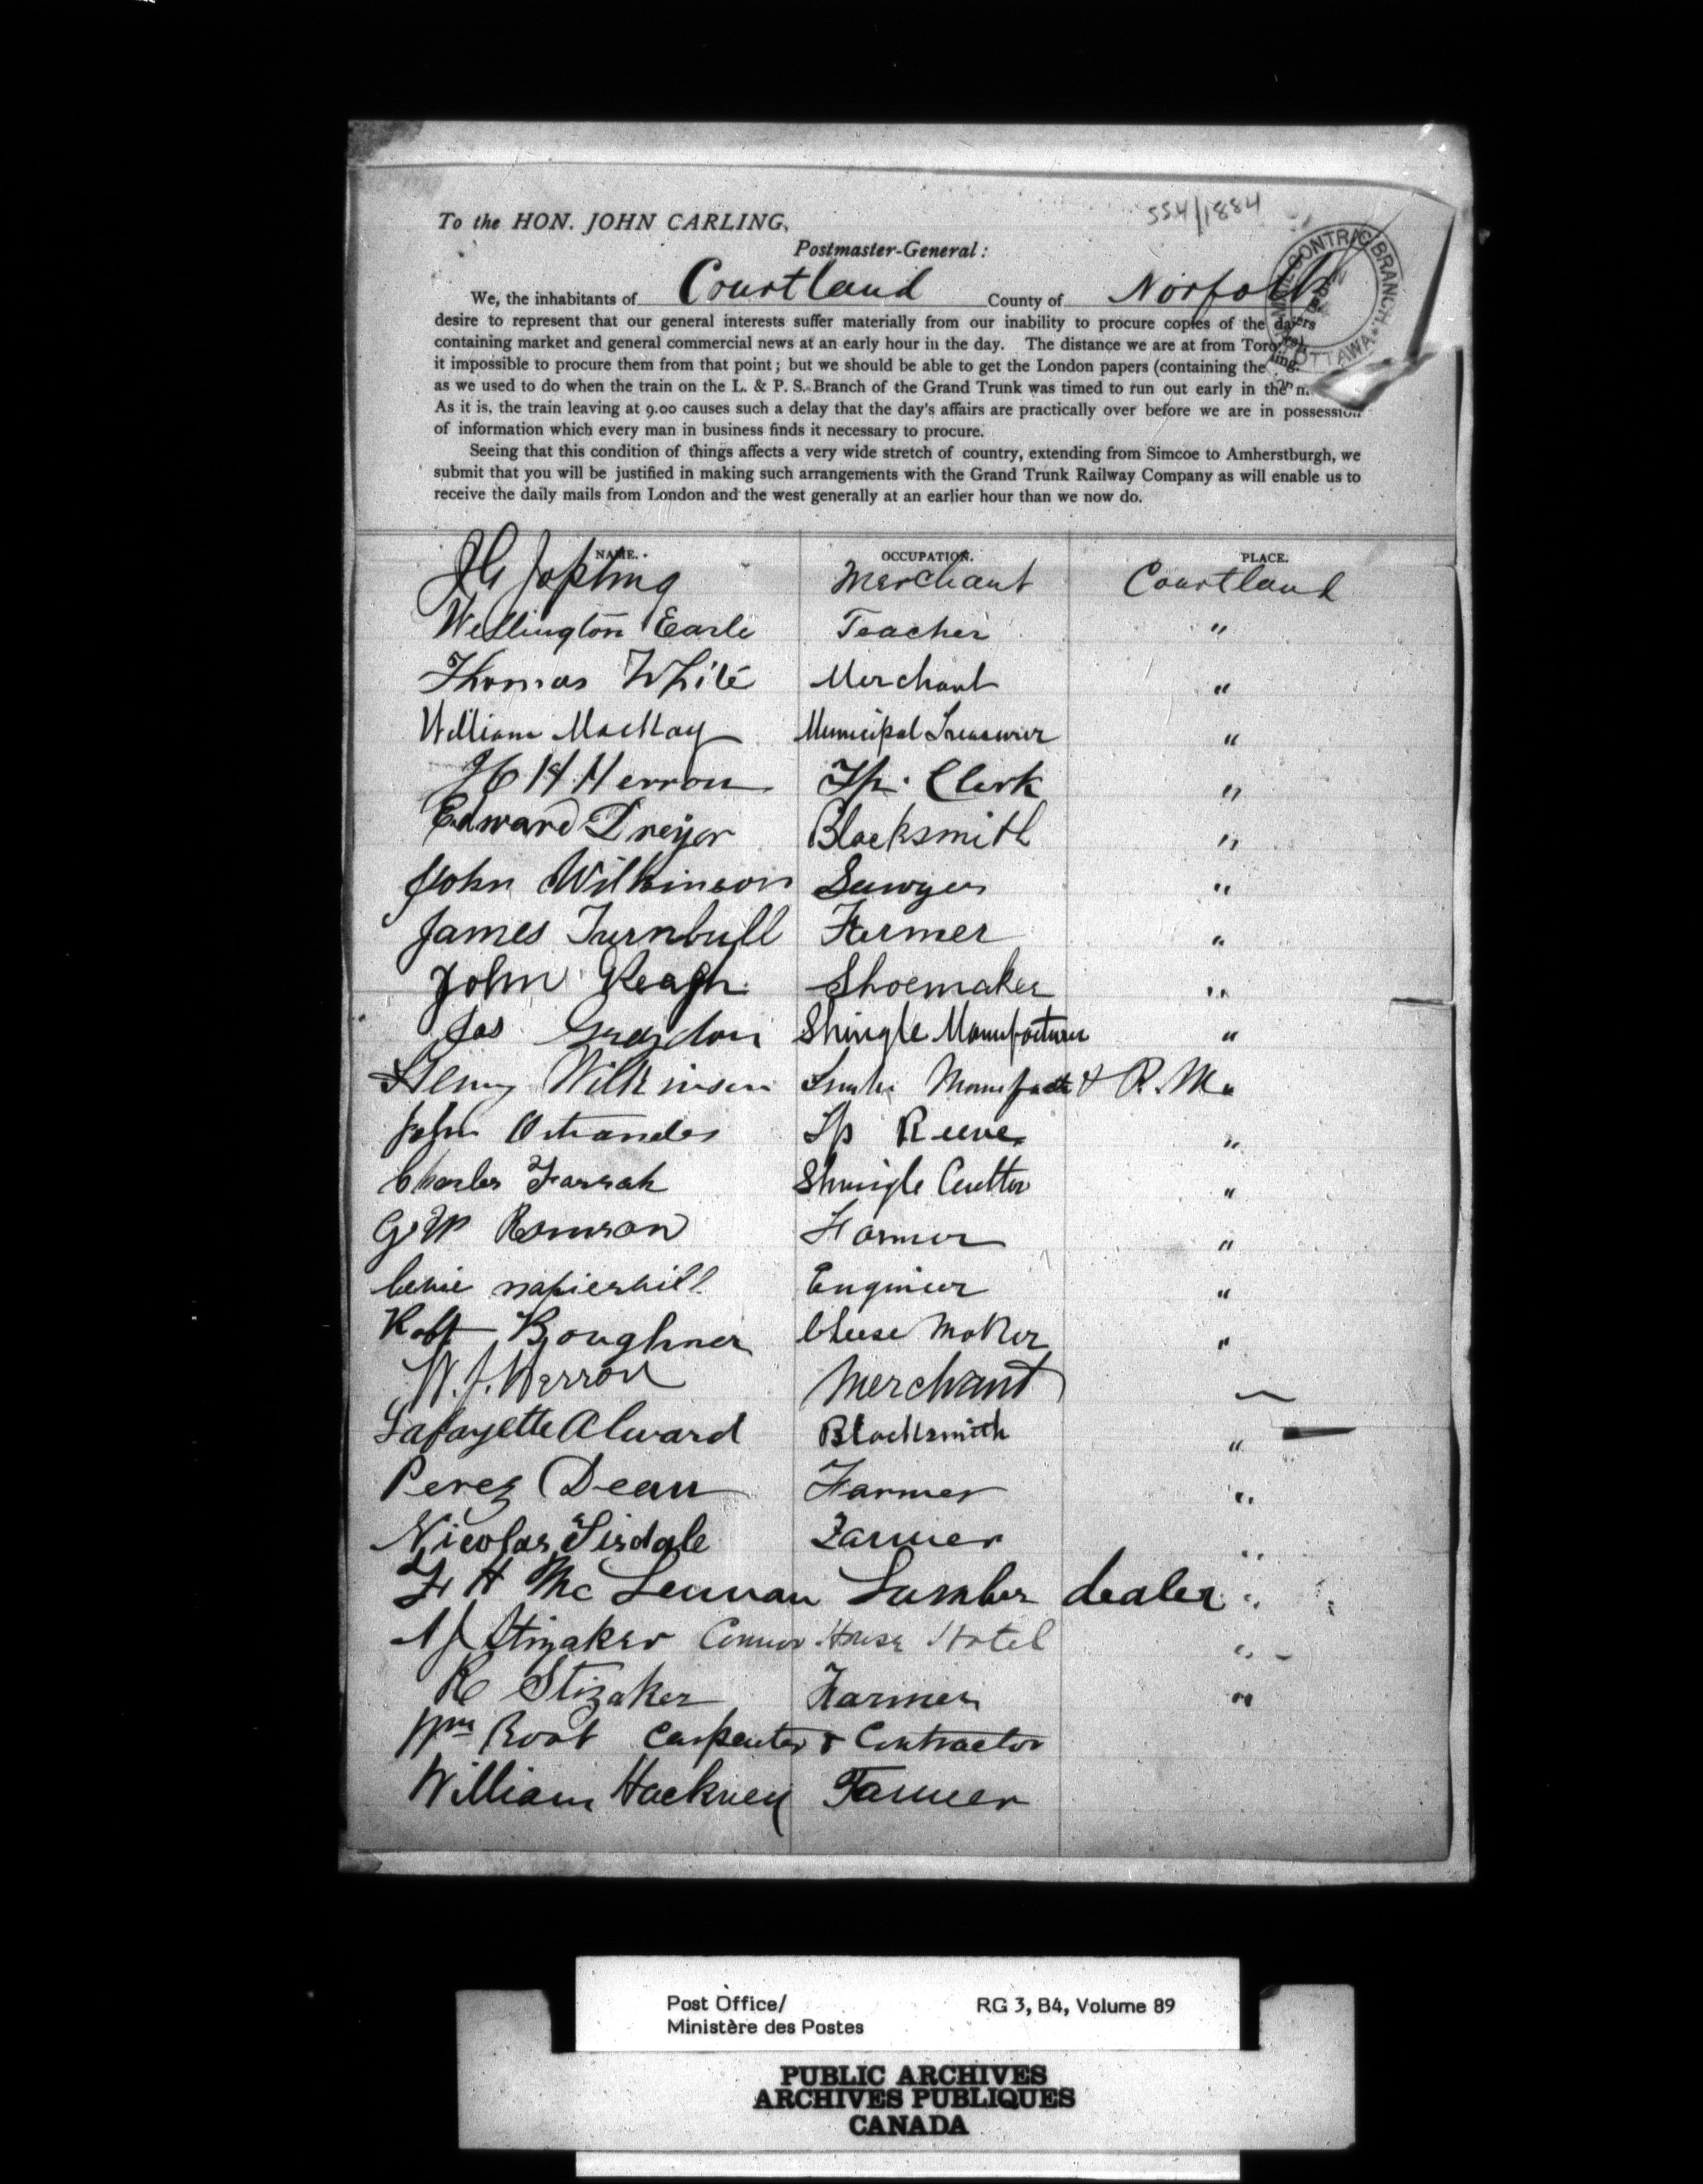 554/1884
To the HON. JOHN CARLING,
Postmaster-General:
We, the inhabitants of Courtland County of Norfolk
desire to represent that our general interests suffer materially from our inability to procure copies of the
containing market and general commercial news at an early hour in the day. The distance we are at from
it impossible to procure them from that point; but we should be able to get the London papers (containing the
as we used to do when the train on the L. & P. S. Branch of the Grand Trunk was timed to run out early in the
As it is, the train leaving at 9.00 causes such a delay that the day's affairs are practically over before we are in possession
of information which every man in business finds it necessary to procure.
Seeing that this condition of things affects a very wide stretch of country, extending from Simcoe to Amherstburgh, we
submit that you will be justified in making such arrangements with the Grand Trunk Railway Company as will enable us to
receive the daily mails from London and the west generally at an earlier hour than we now do.
NAME. OCCUPATION. PLACE.
Jopling Merchant Courtland
Wellington Earle Teacher "
Thomas White Merchant "
William MacKay Municipal Treasurer "
Herron Tp. Clerk "
Edward Dreyer Blacksmith "
John Wilkinson Sawyer "
James Turnbull Farmer "
John Shoemaker "
Jas Graydon Shingle Manufacturer "
Henry Wilkinson & P.M. "
John Ostrander Tp Reeve "
Charles Farrah Shingle Cutter "
Farmer "
Engineer "
Robt Boughner Cheese Maker "
W. J. Herron Merchant
Lafayette Alward Blacksmith "
Perez Dean Farmer "
Nicolas Tisdale Farmer "
H McLennan Lumber dealer "
Stizaker House Hotel "
R Stizaker Farmer "
Wm Root Carpenter & Contractor
William Hackney Farmer
CONTRACT BRANCH
OTTAWA
Post Office/ RG 3, B4, Volume 89
Ministère des Postes
PUBLIC ARCHIVES
ARCHIVES PUBLIQUES
CANADA